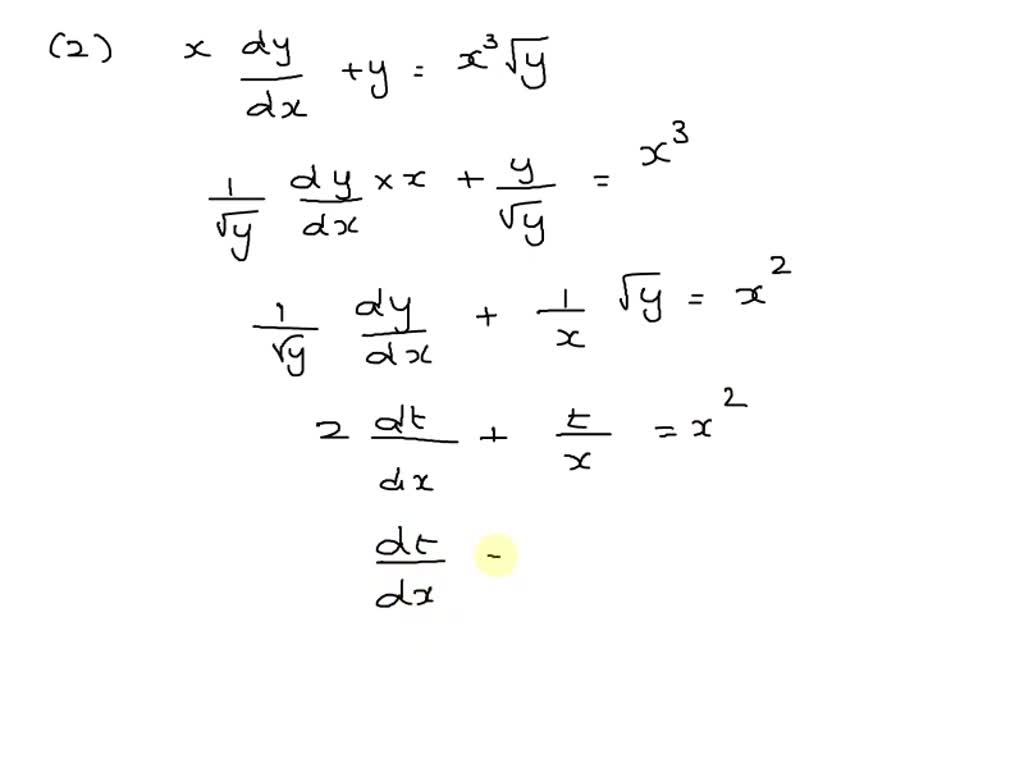 (2) x dy/dx + y = x³√y
1/√y dy/dx × x + y/√y = x³
1/√y dy/dx + 1/x √y = x²
2 dt/dx + t/x = x²
dt/dx -